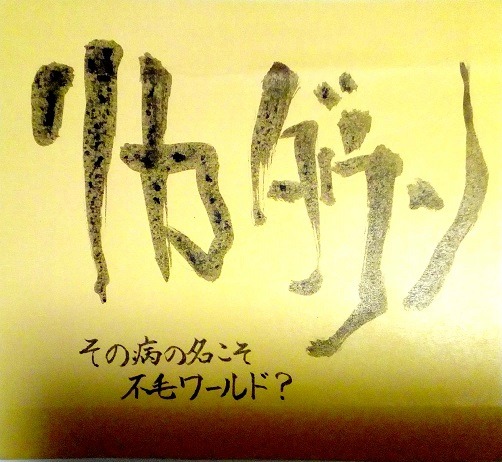 リカダウン
その病の名こそ
不毛ワールド?